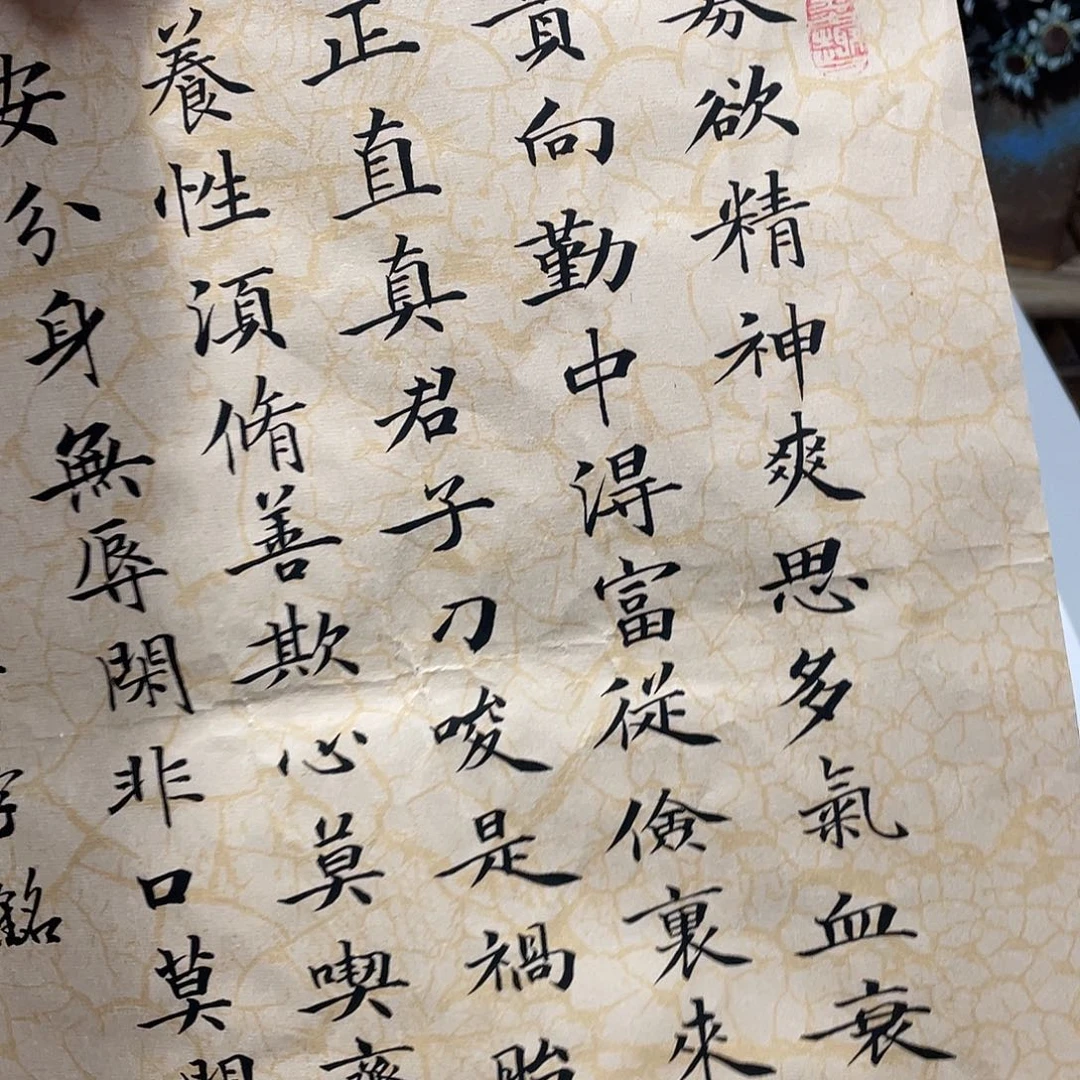 寡欲精神爽思多氣血衰
貴向勤中淂富從儉裏來
正直真君子刁唆是禍胎
養性湏脩善欺心莫喫齋
安分身無辱閑非口莫開
銘